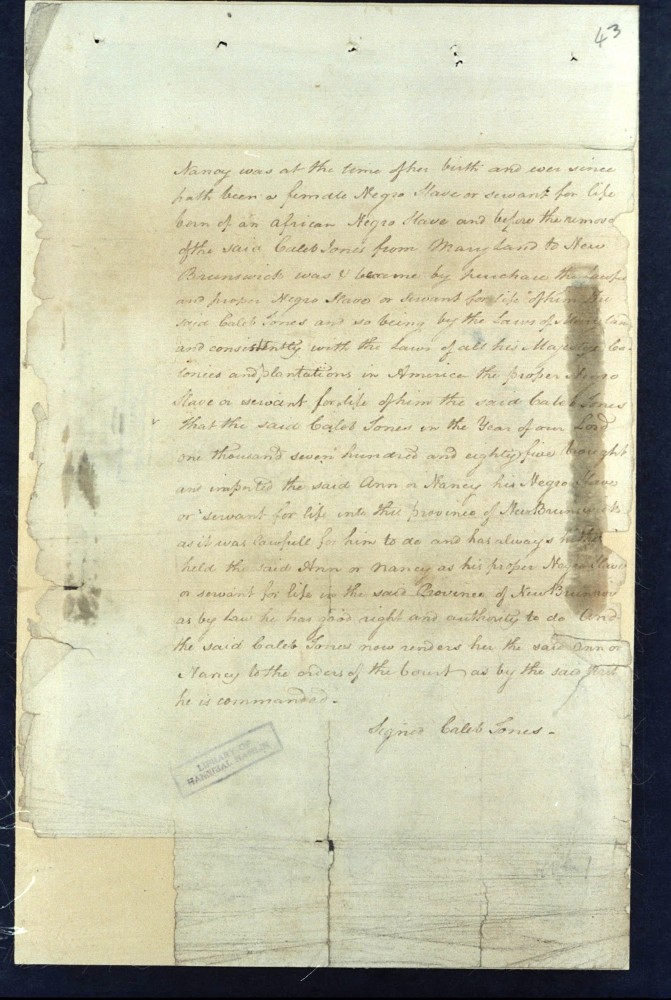 43
Nancy was at the time of her birth and ever since
hath been a female Negro Slave or servant for life
born of an african Negro Slave and before the removal
of the said Caleb Jones from Maryland to New
Brunswick was & became by purchase the Lawful
and proper Negro Slave or servant for life of him the
said Caleb Jones and so being by the Laws of Maryland
and consistently with the Laws of all his Majestys Co
lonies and plantations in America the proper Negro
Slave or servant for life of him the said Caleb Jones
That the said Caleb Jones in the Year of our Lord
one thousand seven hundred and eighty five brought
and imported the said Ann or Nancy his Negro Slave
or servant for life into this province of New Brunswick
as it was lawfull for him to do and has always hitherto
held the said Ann or Nancy as his proper Negro Slave
or servant for life in the said Province of New Brunswick
as by Law he has good right and authority to do And
the said Caleb Jones now renders her the said Ann or
Nancy to the orders of the Court as by the said Writ
he is commanded.
Signed Caleb Jones
LIBRARY OF
HANNIBAL HAMLIN